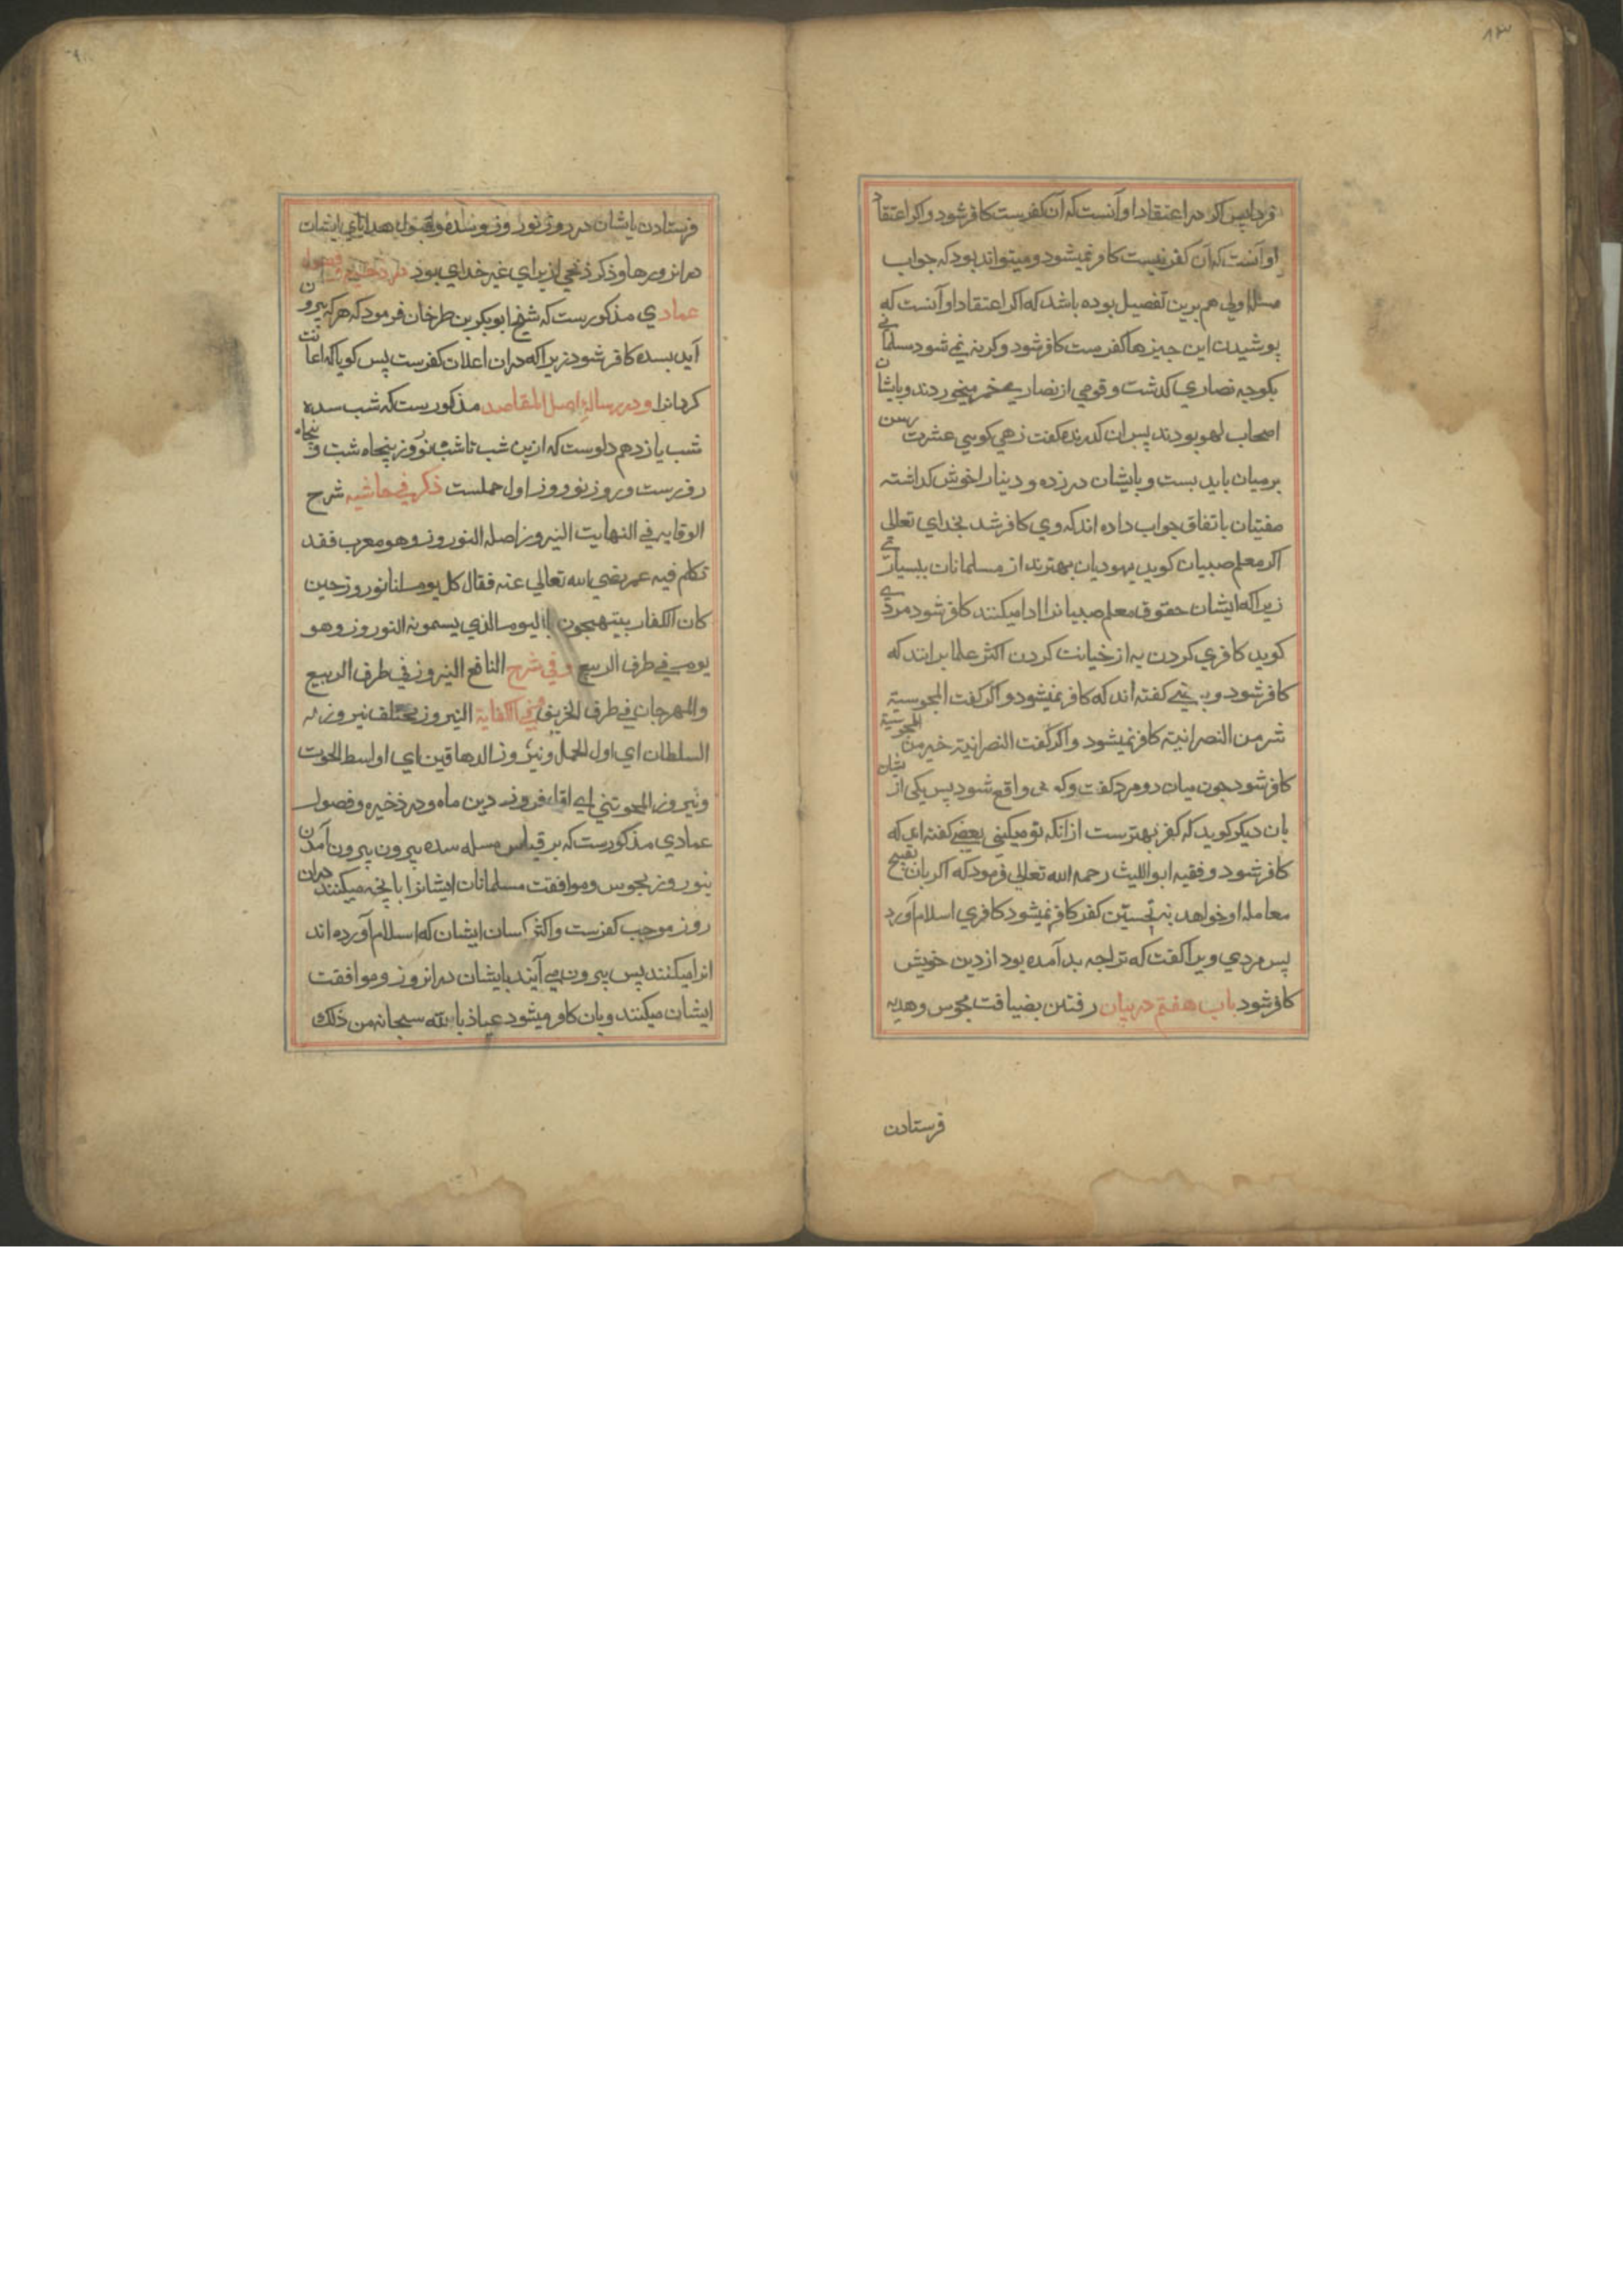 ۸۳
فرداپس اگر در اعتقاد او آنست که آن کفرست کافر شود و اگر اعتقاد
او آنست که آن کفر نیست کافر نمیشود و میتواند بود که جواب
مسئله اولی هم برین تفصیل بوده باشد که اگر اعتقاد او آنست که
پوشیدن این چیزها کفرست کافر شود و گرنه نمی شود مسلمانی
بکوچه نصاری گذشت و قومی از نصاری خمر میخوردند و باایشان
اصحاب لهو بودند پس آن گذرنده گفت زهی کوی عشرت رسن
بر میان باید بست و بایشان در زده و دنیا را خوش گذاشته
مفتیان باتفاق جواب داده اند که وی کافر شد بخدای تعالی
اگر معلم صبیان گوید یهودیان بهترند از مسلمانان ببسیاری
زیرا که ایشان حقوق معلم صبیانرا ادا میکنند کافر شود مردی
گوید کافری کردن به از خیانت کردن اکثر علما برانند که
کافر شود و گفته اند که کافر نمیشود و اگر گفت المجوسیة
شر من النصرانیة کافر نمیشود و اگر گفت النصرانیة خیر من المجوسیة
کافر شود چون میان دو مرد گفت و گو ی واقع شود پس یکی از ایشان
بان دیگر گوید که کفر بهترست از آنکه تو میکنی بعضی گفته اند که
کافر شود و فقیه ابواللیث رحمه الله تعالی فرمود که اگر بان تقبیح
معامله او خواهد نه تحسین کفر کافر نمیشود کافری اسلام آورد
پس مردی ویرا گفت که ترا چه بد آمده بود از دین خویش
کافر شود باب هفتم در بیان رفتن بضیافت مجوس و هدیه
فرستادن
فرستادن بایشان در روز نوروز و سده و قبول هدایای ایشان
در انروزها و ذکر ذبحی از برای غیر خدای بود در ذخیره و فصول
عمادی مذکورست که شیخ ابوبکر بن طرخان فرمود که هر که بیرون
آید بسده کافر شود زیرا که در ان اعلان کفرست پس گویا که اعانت
کرد انرا و در رساله اصل المقاصد مذکورست که شب سده
شب یازدهم دلوست که ازین شب تا شب نوروز پنجاه شب و پنجاه
روزست و روز نوروز اول حملست ذکر فی حاشیه شرح
الوقایه فی النهایت النیروز اصله النوروز و هو معرب فقد
تکلم فیه عمر رضی الله تعالی عنه فقال کل یوم لنا نوروز حین
کان الکفار یبتهجون الیوم الذی یسمونه النوروز و هو
یوم فی طرف الربیع و فی شرح النافع النیروز فی طرف الربیع
والمهرجان فی طرف الخریف و فی الکفایة النیروز مختلف نیروز
السلطان ای اول الحمل و نیروز الدهاقین ای اواسط الحوت
و نیروز المجوس ای فروردین ماه و در ذخیره و فصول
عمادی مذکورست که بر قیاس مسله سده بیرون بیرون آمدن
بنوروز مجوس و موافقت مسلمانان ایشانرا بانچه میکنند دران
روز موجب کفرست و اکثر کسان ایشان که اسلام آورده اند
انرا میکنند پس بیرون می آیند بایشان در انروز و موافقت
ایشان میکنند و بان کافر میشود عیاذ بالله سبحانه من ذلک